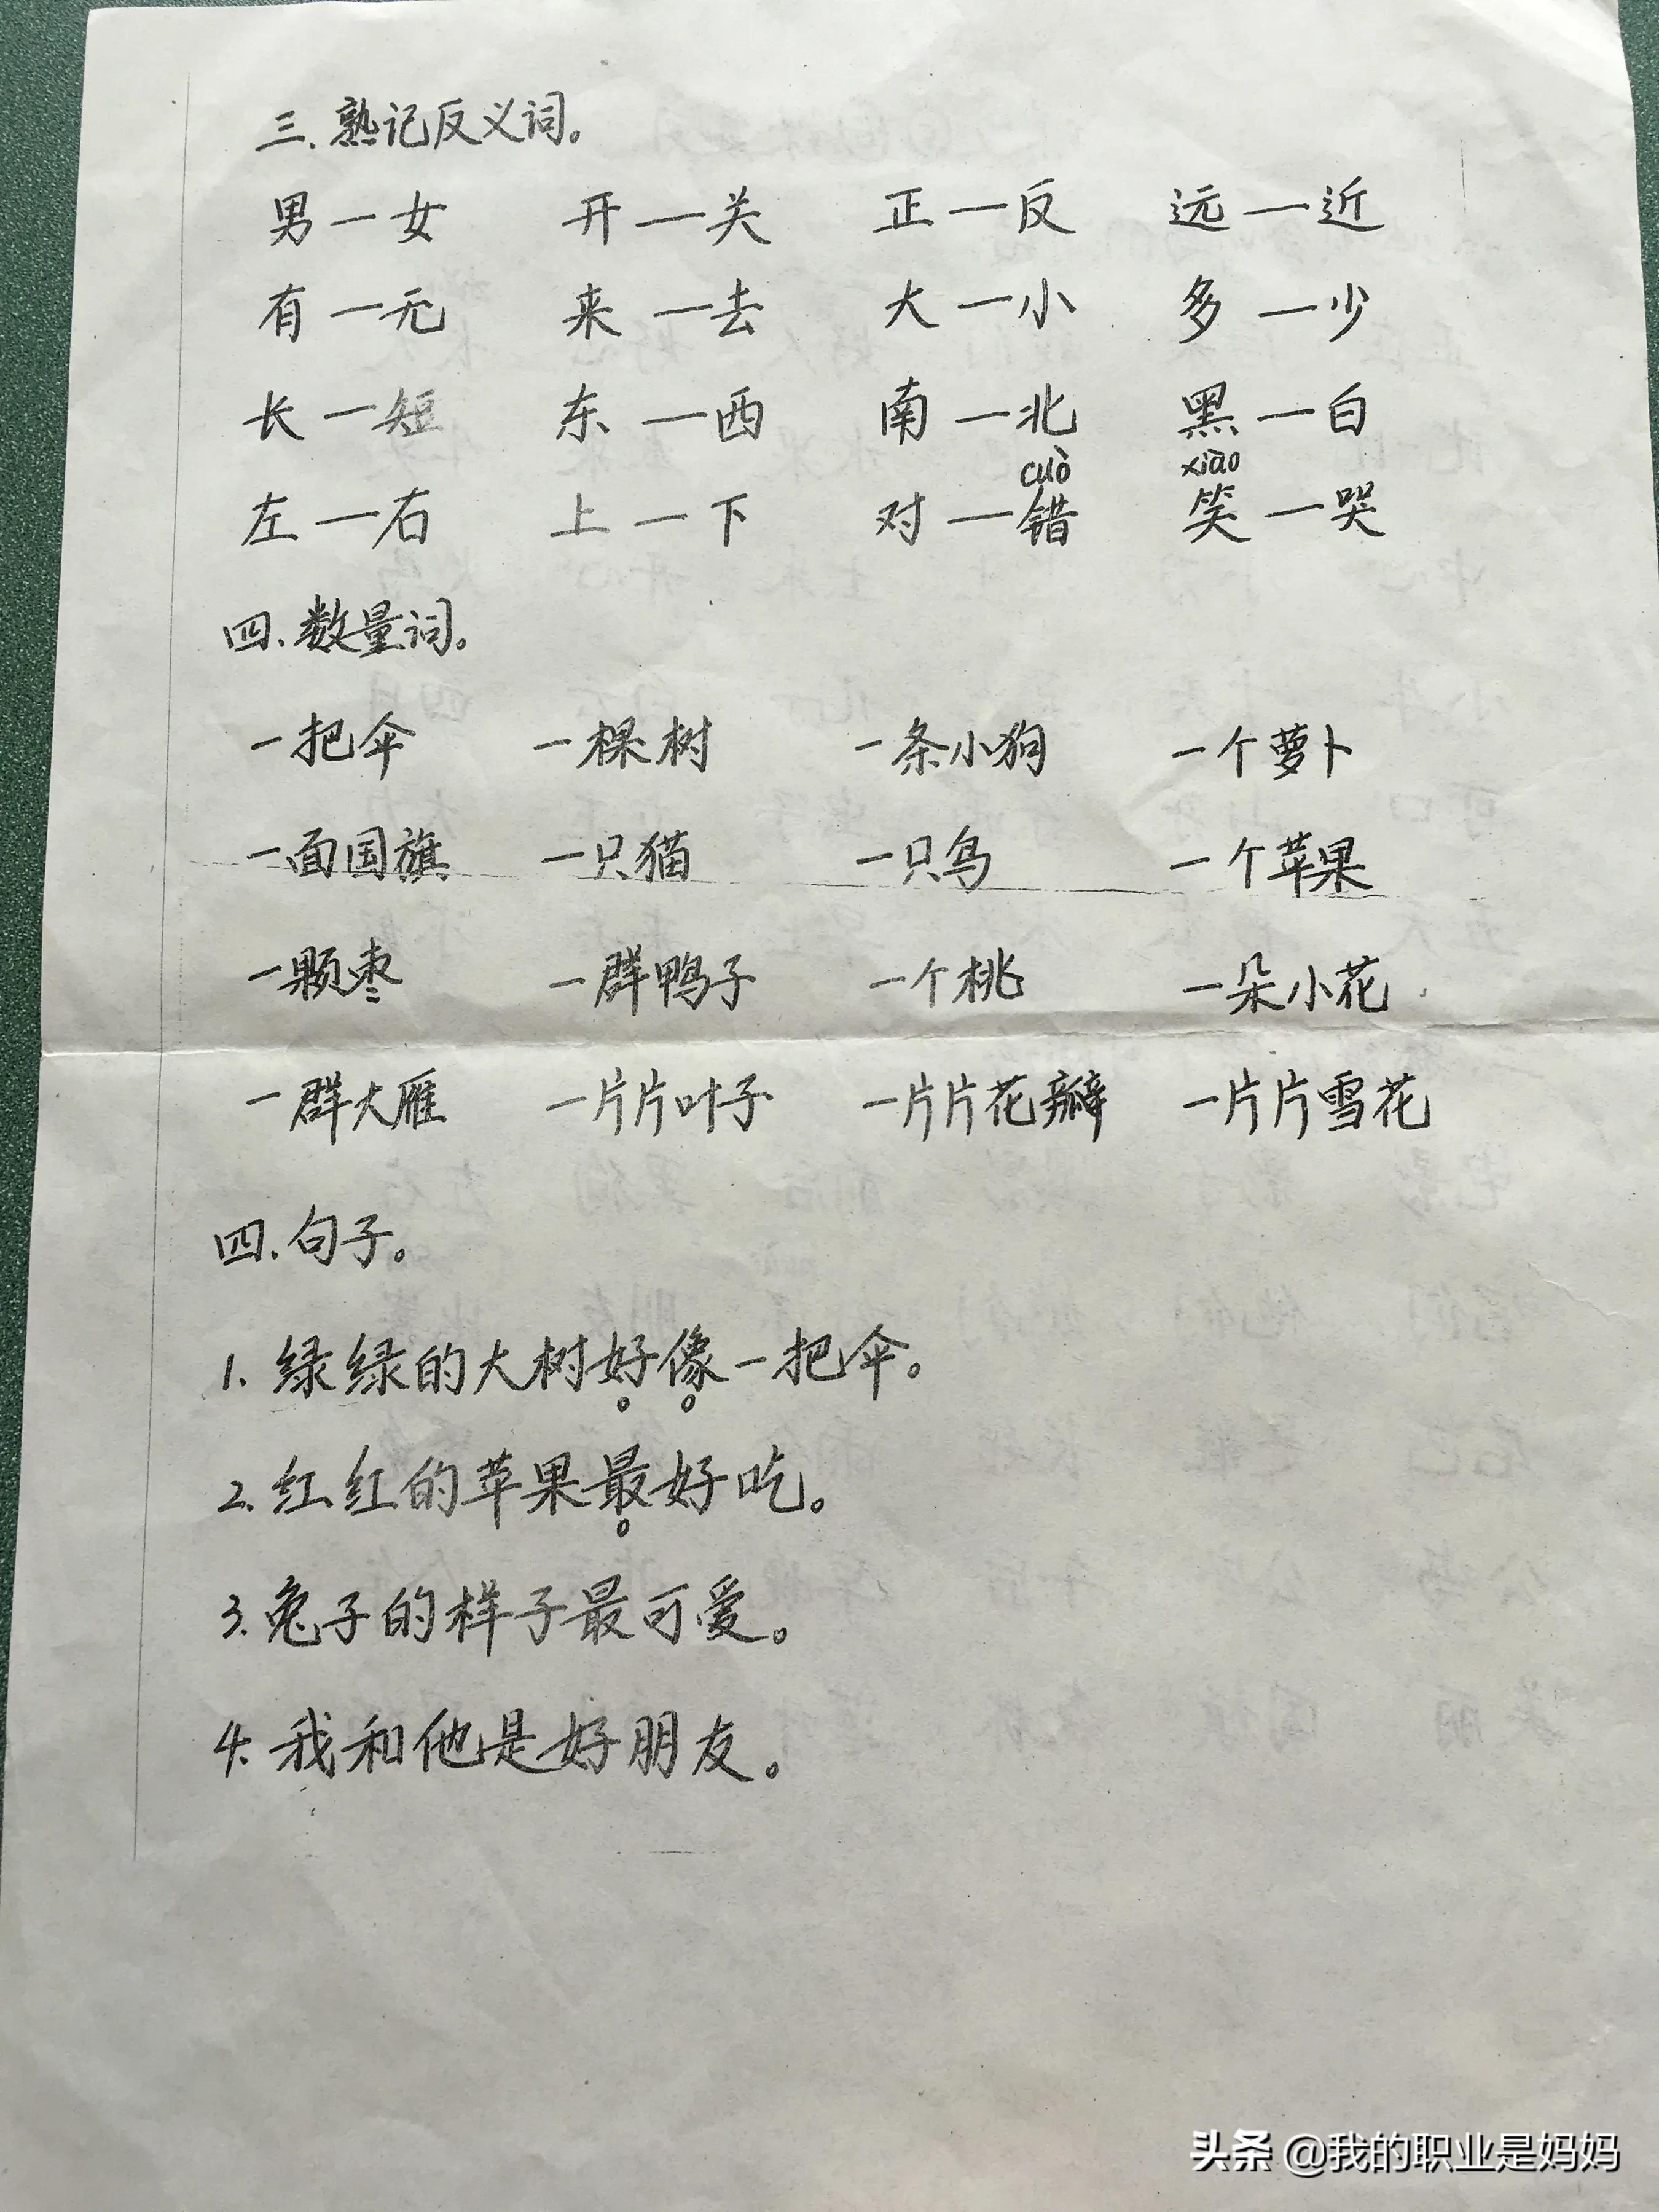 三、熟记反义词。
男—女 开—关 正—反 远—近
有—无 来—去 大—小 多—少
长—短 东—西 南—北 黑—白
cuò xiào
左—右 上—下 对—错 笑—哭
四、数量词。
一把伞 一棵树 一条小狗 一个萝卜
一面国旗 一只猫 一只鸟 一个苹果
一颗枣 一群鸭子 一个桃 一朵小花
一群大雁 一片片叶子 一片片花瓣 一片片雪花
四、句子。
1. 绿绿的大树好像一把伞。
2. 红红的苹果最好吃。
3. 兔子的样子最可爱。
4. 我和他是好朋友。
头条 @我的职业是妈妈